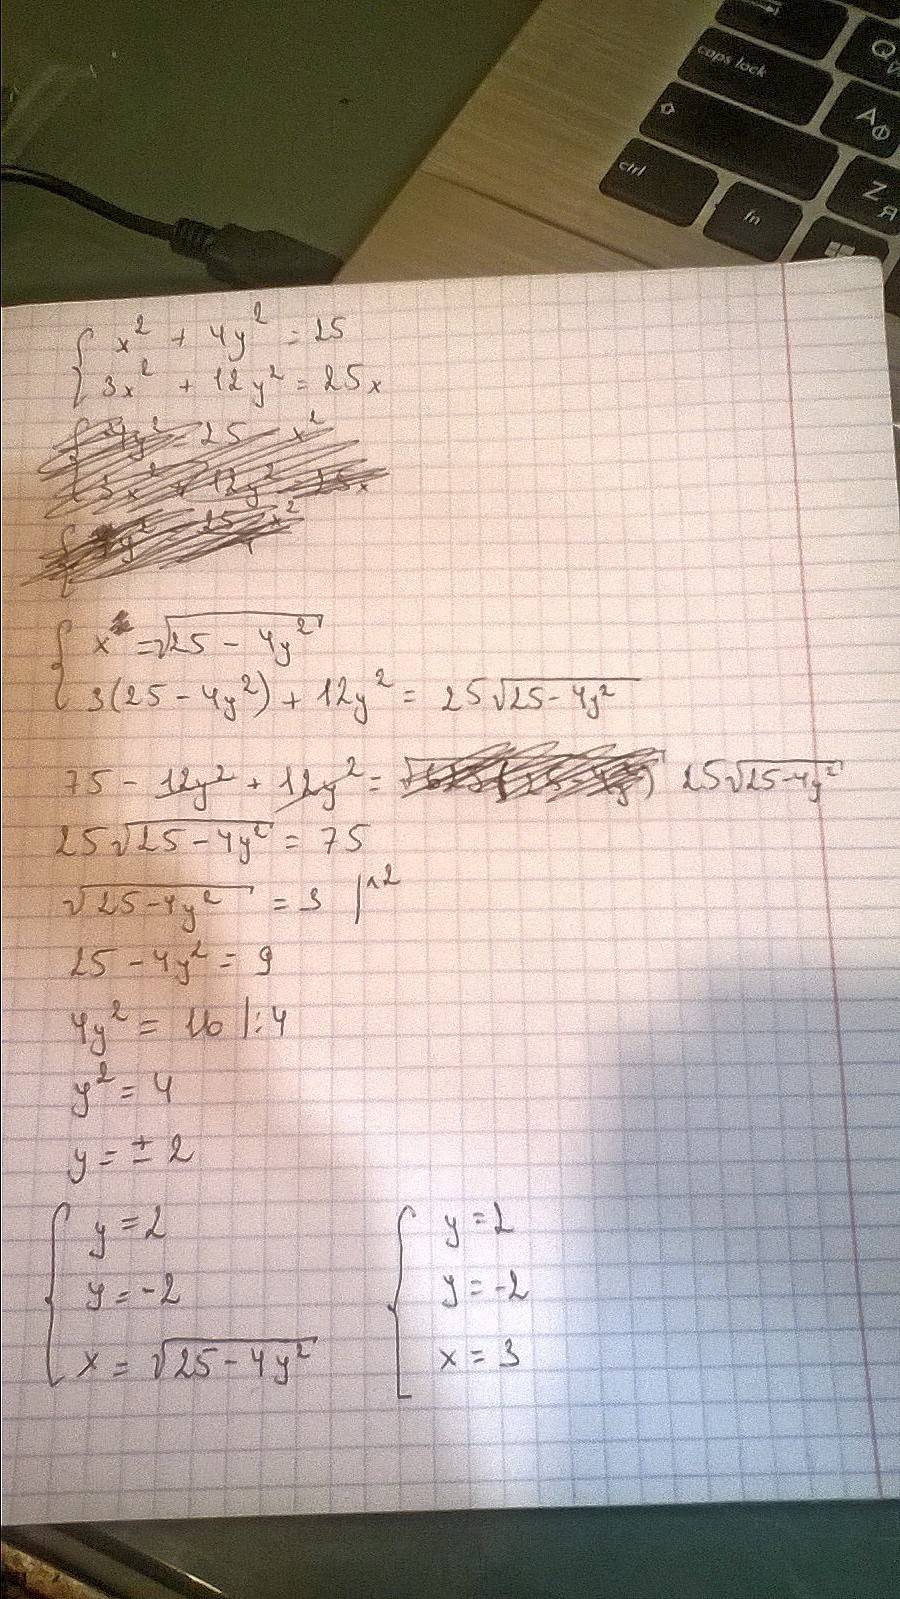 caps lock
Q
A Ф
ctrl
fn
Z Я
{ x² + 4y² = 25
{ 3x² + 12y² = 25x
{ x = √25 - 4y²
{ 3(25 - 4y²) + 12y² = 25√25 - 4y²
75 - 12y² + 12y² = 25√25-4y²
25√25 - 4y² = 75
√25-4y² = 3 |^2
25 - 4y² = 9
4y² = 16 |:4
y² = 4
y = ± 2
{ y = 2
y = -2
x = √25 - 4y²
{ y = 2
y = -2
x = 3